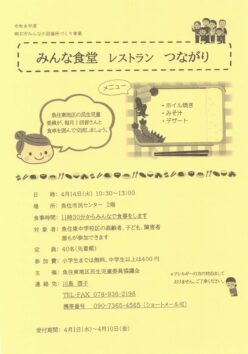 令和8年度
明石市みんな食堂づくり事業
みんな食堂 レストラン つながり
メニュー
・ホイル焼き
・みそ汁
・デザート
魚住東地区の民生児童
委員が、毎月1回皆さんと
食卓を囲んで交流しましょう。
日 時: 4月14日(火) 10:30~13:00
場 所: 魚住市民センター 2階
食事時間: 11時30分からみんなで食事をします
対 象 者: 魚住東中学校区の高齢者、子ども、障害者
誰もが参加できます
定 員: 40名(先着順)
参 加 費: 小学生までは無料、中学生以上は400円
主 催: 魚住東地区民生児童委員協議会
連 絡 先: 川島
TEL・FAX 078-936-2198
携帯番号 090-7365-4565 (ショートメール可)
*アレルギーの方の対応はして
おりません。ご了承ください。
受付期間: 4月1日(水)~4月10日(金)